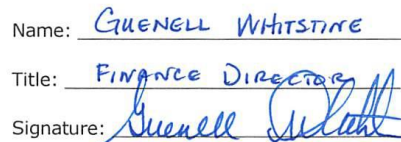 Name: GUENELL WHITSTINE
Title: FINANCE DIRECTOR
Signature: Guenell